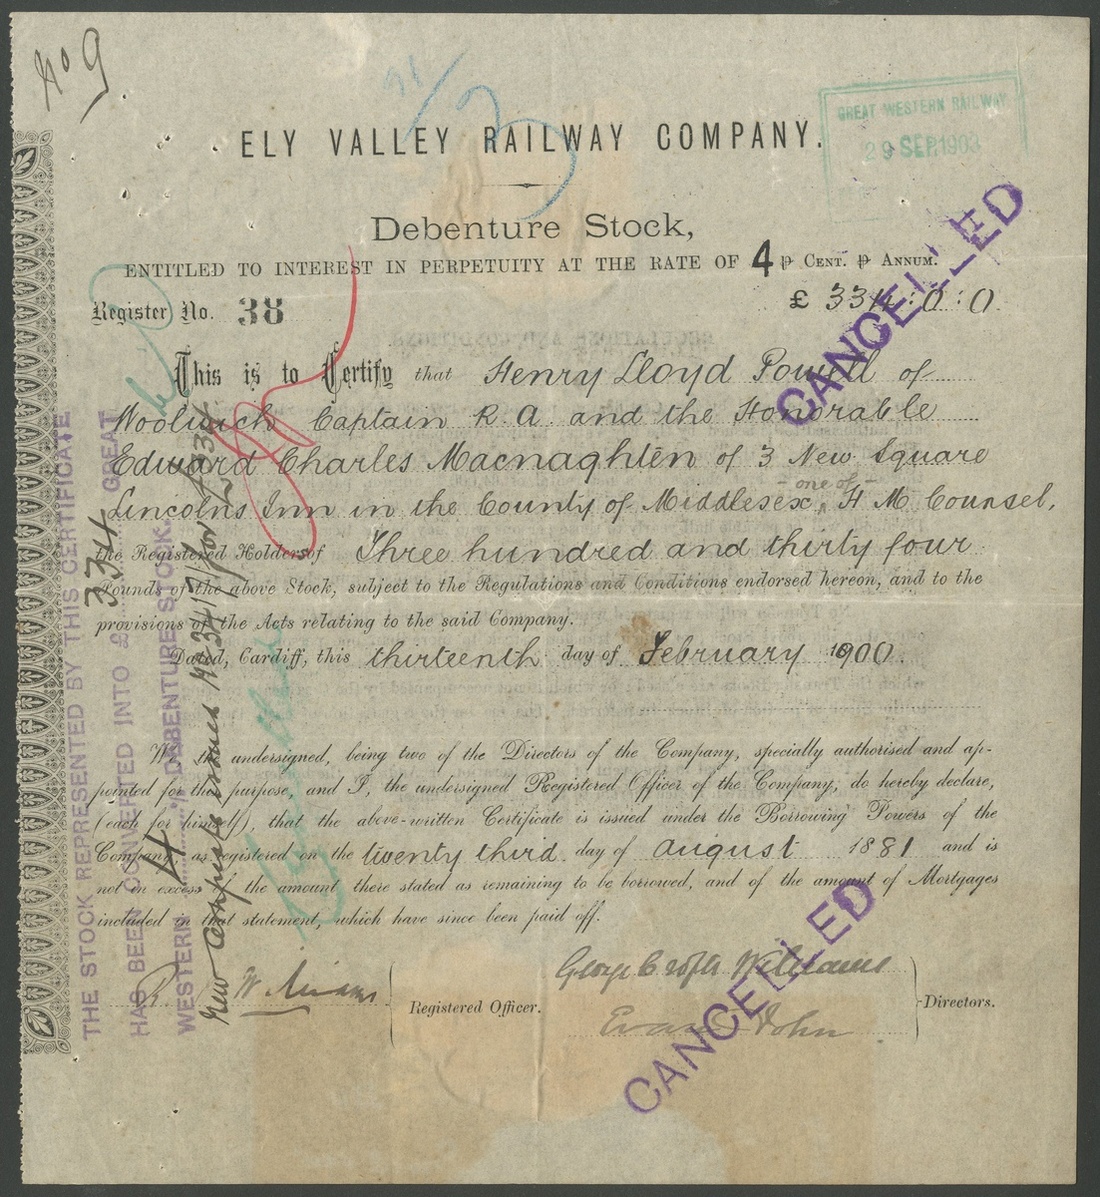 No 9
ELY VALLEY RAILWAY COMPANY.
GREAT WESTERN RAILWAY
29 SEP.1903
Debenture Stock,
ENTITLED TO INTEREST IN PERPETUITY AT THE RATE OF 4 ⅌ CENT. ⅌ ANNUM.
Register No. 38
£ 334:0:0.
CANCELLED
This is to Certify that Henry Lloyd Powell of
Woolwich Captain R.A. and the Honorable
Edward Charles Macnaghten of 3 New Square
Lincolns Inn in the County of Middlesex, - one of - H M Counsel,
the Registered Holders of Three hundred and thirty four
Pounds of the above Stock, subject to the Regulations and Conditions endorsed hereon, and to the
provisions of the Acts relating to the said Company.
Dated, Cardiff, this thirteenth day of February 1900.
We, the undersigned, being two of the Directors of the Company, specially authorised and ap-
pointed for that purpose, and I, the undersigned Registered Officer of the Company, do hereby declare,
(each for himself), that the above-written Certificate is issued under the Borrowing Powers of the
Company as registered on the twenty third day of august 1881 and is
not in excess of the amount there stated as remaining to be borrowed, and of the amount of Mortgages
included in that statement, which have since been paid off.
R. Williams
Registered Officer.
George Williams
Evan John
Directors.
CANCELLED
THE STOCK REPRESENTED BY THIS CERTIFICATE
HAS BEEN CONVERTED INTO £ 334 GREAT
WESTERN 4 DEBENTURE STOCK.
New Certificate issued No 3417 for £334